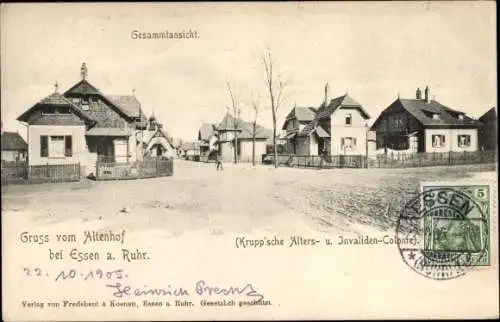 Gesammtansicht.
Gruss vom Altenhof
bei Essen a. Ruhr.
(Krupp'sche Alters- u. Invaliden-Colonie).
22. 10. 1905.
Heinrich
ESSEN
5
Verlag von Fredebeul & Koenen, Essen a. Ruhr. Gesetzlich geschützt.